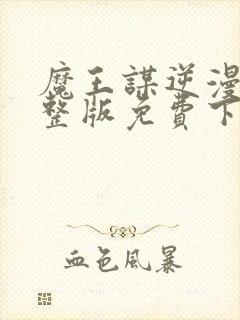 魔王謀逆漫
整版免費下
血色風暴